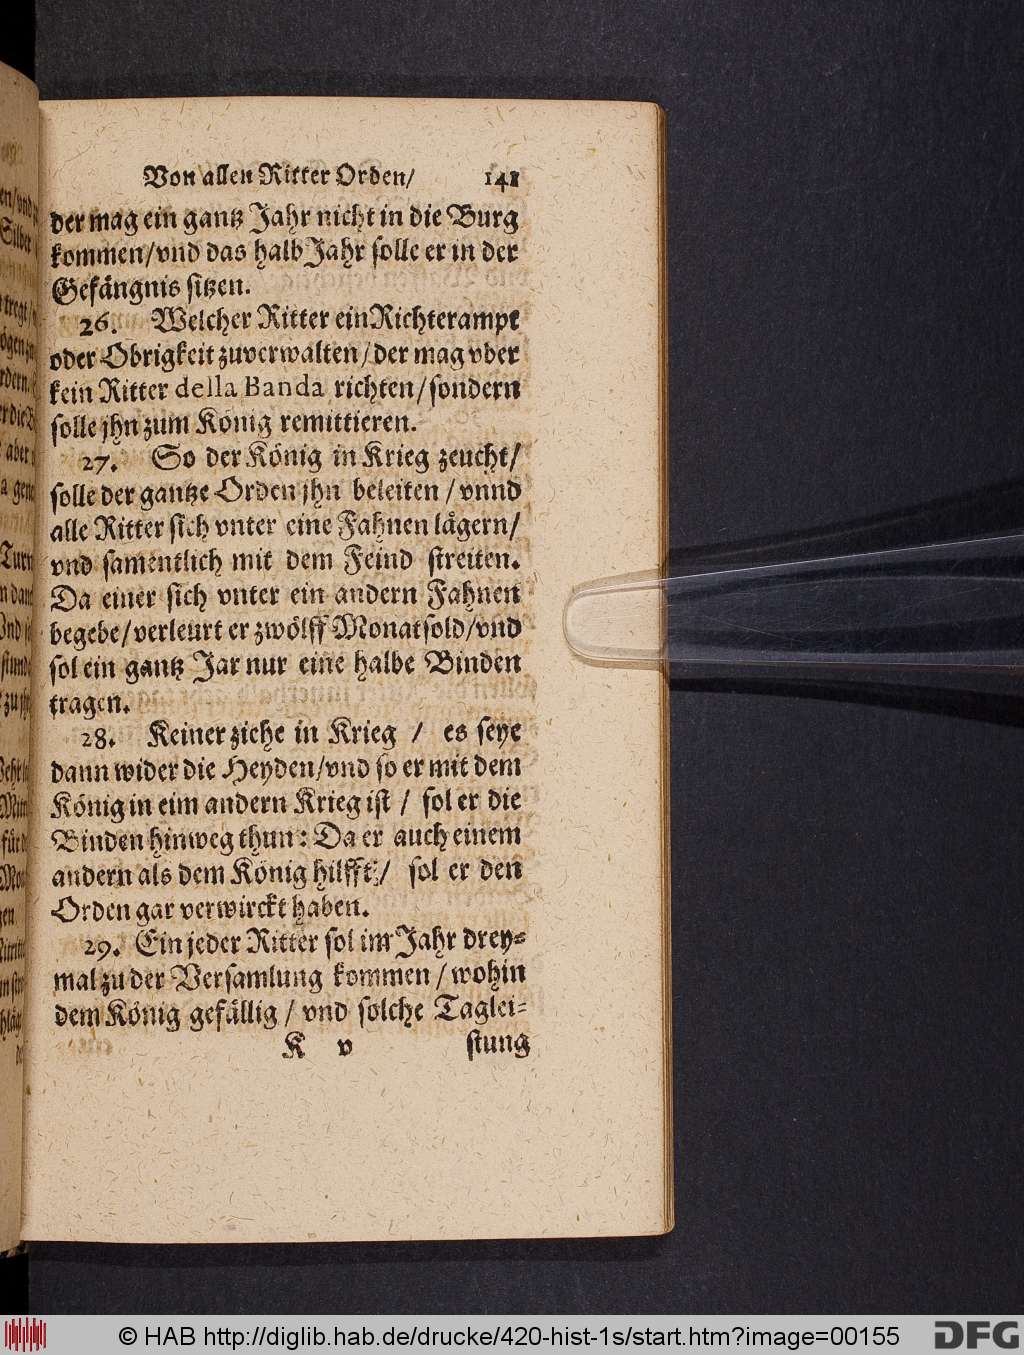 Von allen Ritter Orden/ 141
der mag ein gantz Jahr nicht in die Burg
kommen/vnd das halb Jahr solle er in der
Gefängnis sitzen.
26. Welcher Ritter ein Richterampt
oder Obrigkeit zuverwalten/der mag vber
kein Ritter della Banda richten/sondern
solle jhn zum König remittieren.
27. So der König in Krieg zeucht/
solle der gantze Orden jhn beleiten/vnnd
alle Ritter sich vnter eine Fahnen lägern/
vnd samentlich mit dem Feind streiten.
Da einer sich vnter ein andern Fahnen
begebe/verleurt er zwölff Monatsold/vnd
sol ein gantz Jar nur eine halbe Binden
tragen.
28. Keiner ziehe in Krieg / es seye
dann wider die Heyden/vnd so er mit dem
König in eim andern Krieg ist / sol er die
Binden hinweg thun: Da er auch einem
andern als dem König hilfft/ sol er den
Orden gar verwirckt haben.
29. Ein jeder Ritter sol im Jahr drey-
mal zu der Versamlung kommen/wohin
dem König gefällig / vnd solche Taglei-
K v stung
© HAB http://diglib.hab.de/drucke/420-hist-1s/start.htm?image=00155
DFG